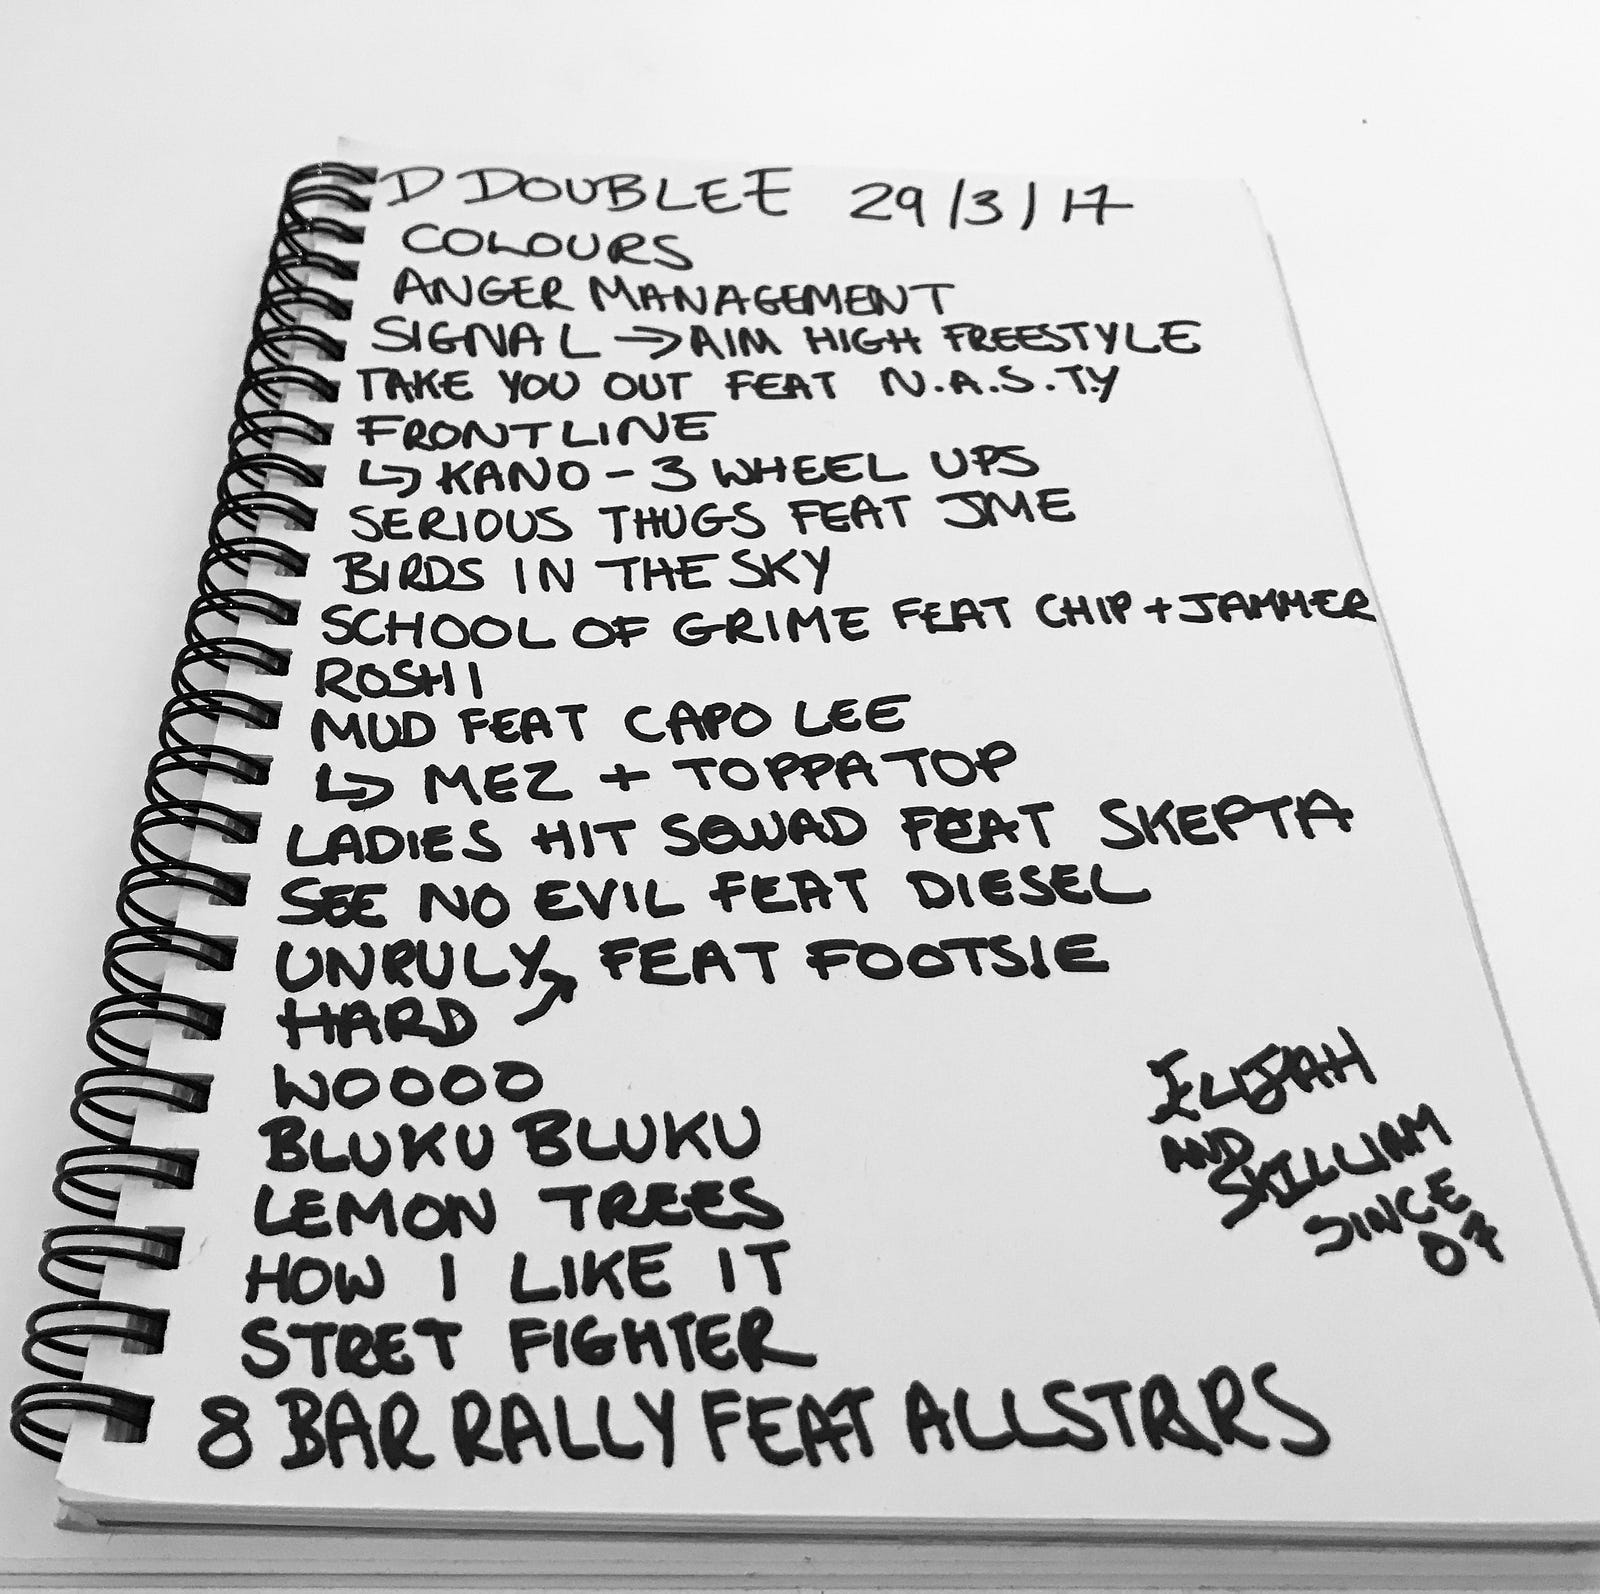 D DOUBLE E 29/3/17
COLOURS
ANGER MANAGEMENT
SIGNAL → AIM HIGH FREESTYLE
TAKE YOU OUT FEAT N.A.S.TY
FRONTLINE
↳ KANO - 3 WHEEL UPS
SERIOUS THUGS FEAT JME
BIRDS IN THE SKY
SCHOOL OF GRIME FEAT CHIP + JAMMER
ROSHI
MUD FEAT CAPO LEE
↳ MEZ + TOPPA TOP
LADIES HIT SQUAD FEAT SKEPTA
SEE NO EVIL FEAT DIESEL
UNRULY FEAT FOOTSIE
HARD ↗
WOOOO
BLUKU BLUKU
LEMON TREES
HOW I LIKE IT
STRET FIGHTER
8 BAR RALLY FEAT ALLSTARS
ELIJAH
AND
SKILLIAM
SINCE
07